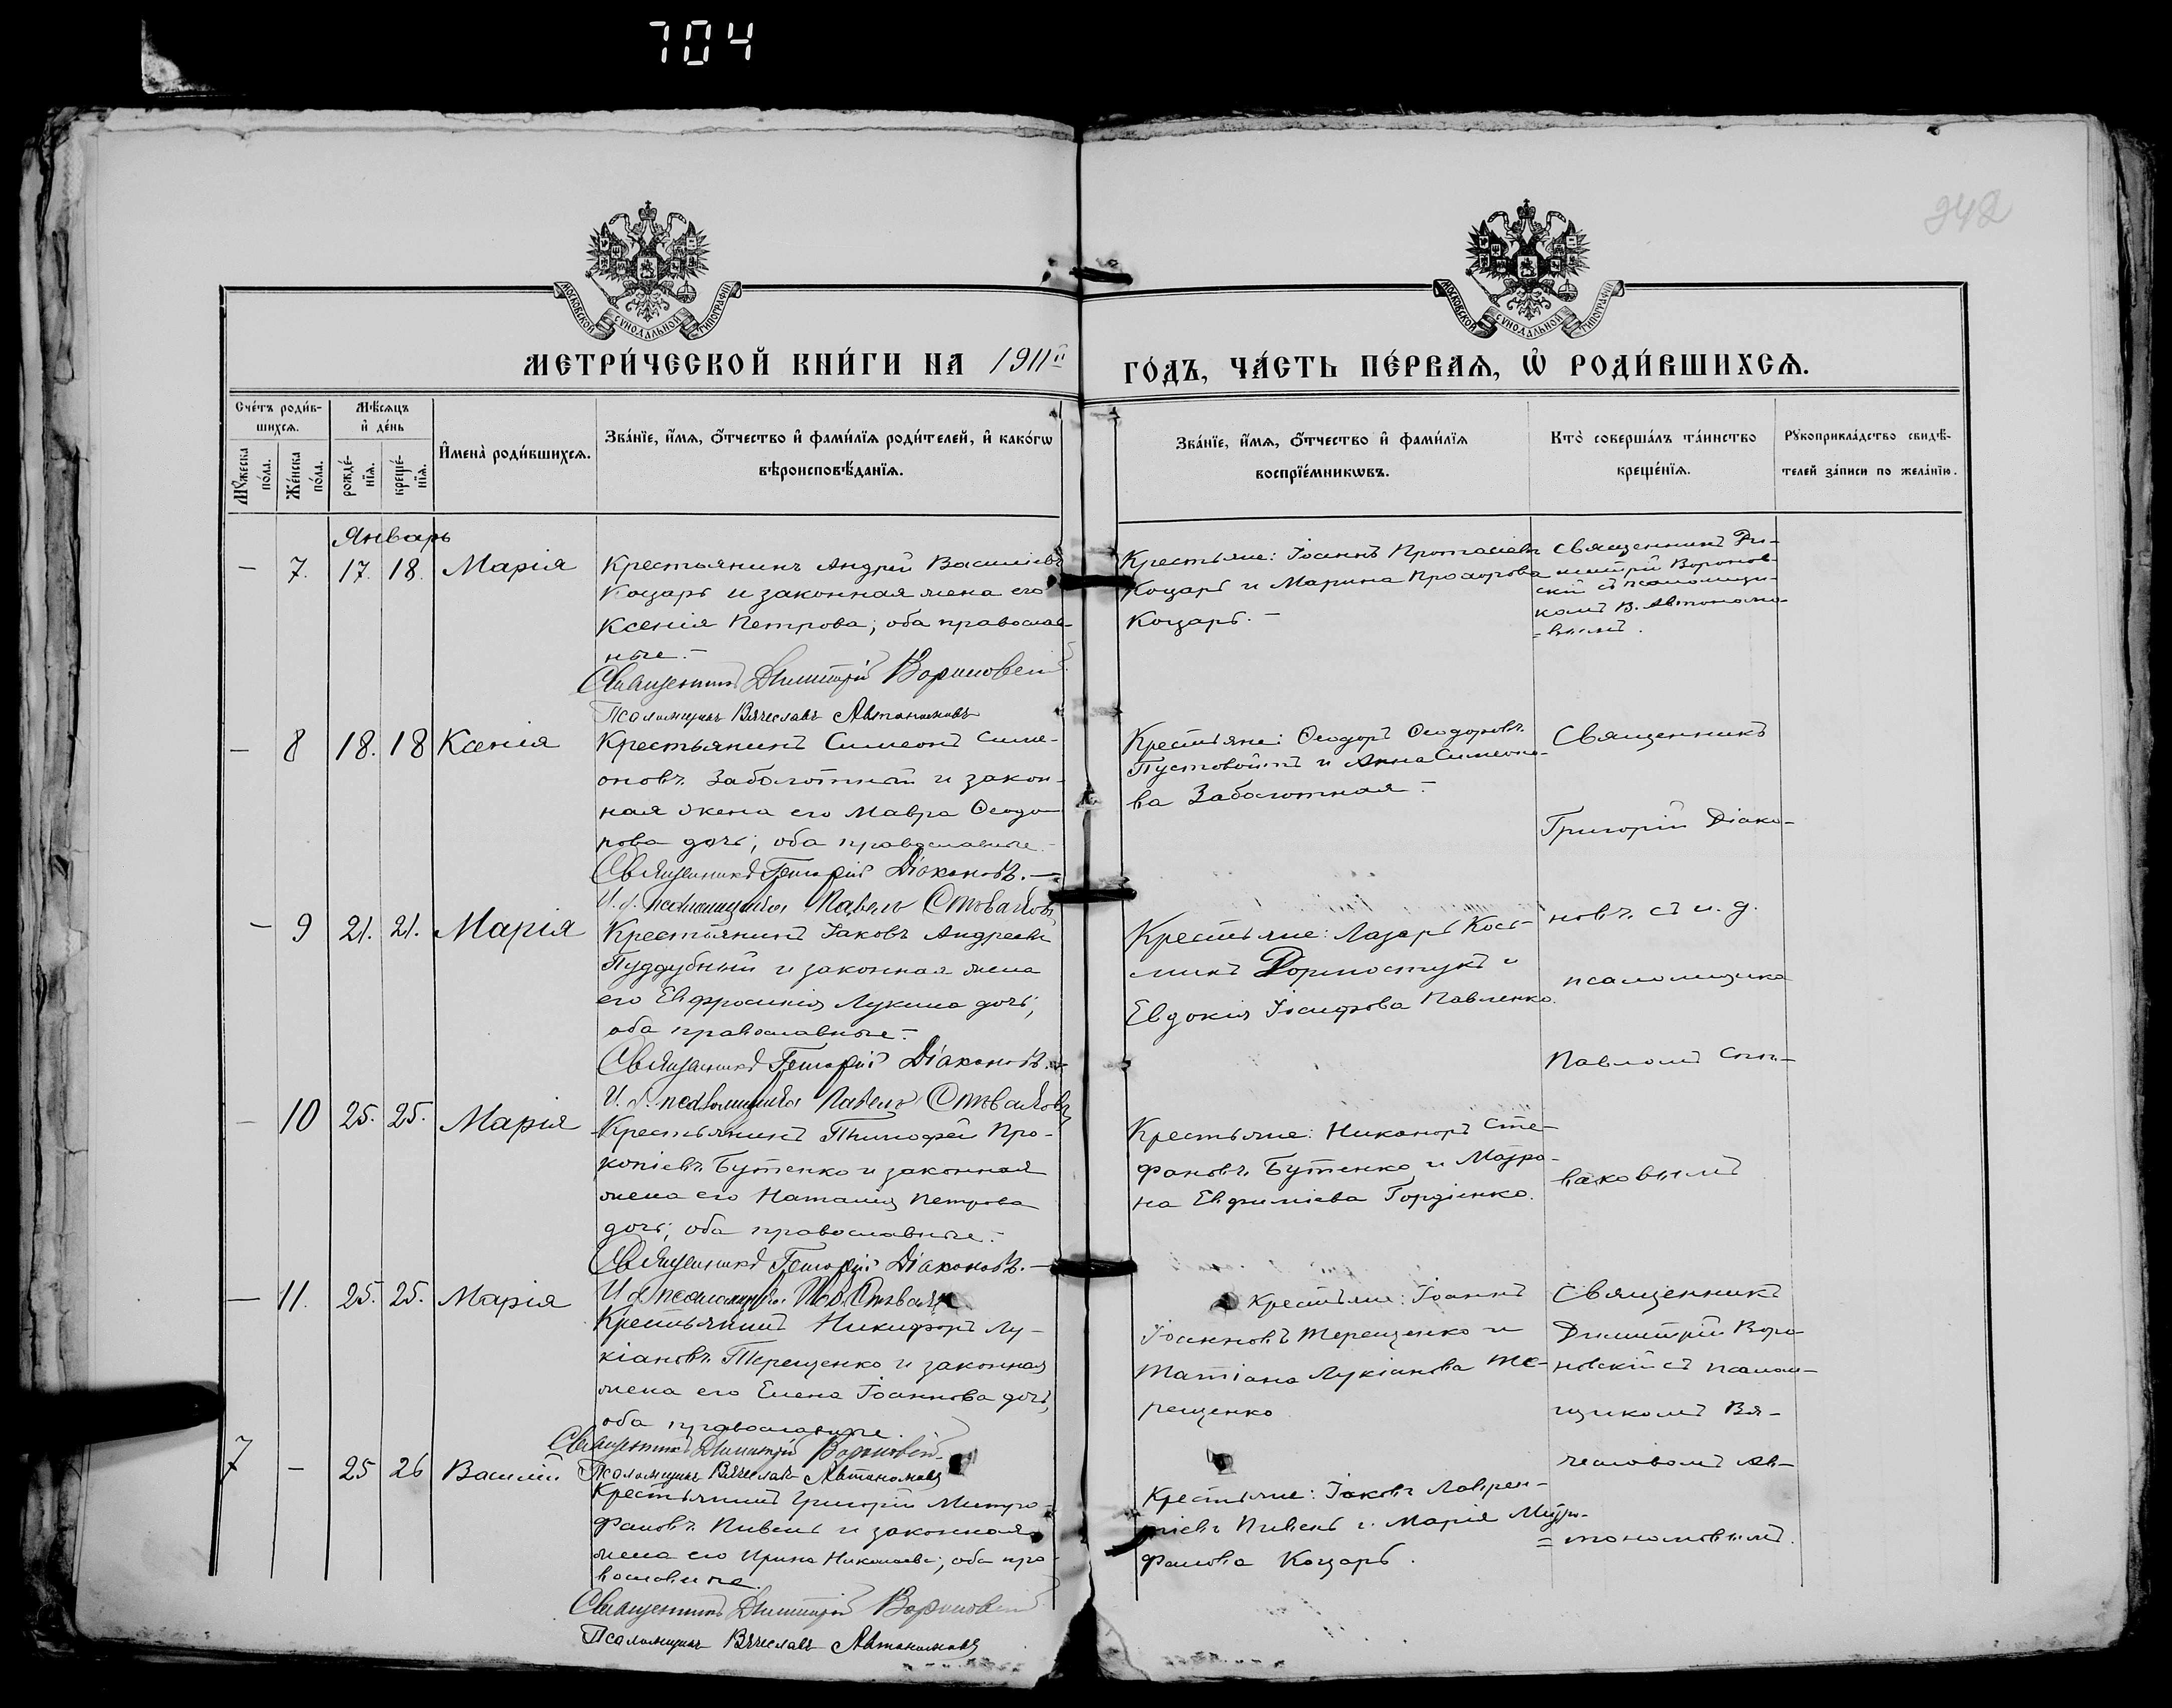 704
242
МОСКОВСКОЙ СѴНОДАЛЬНОЙ ТИПОГРАФІИ
МОСКОВСКОЙ СѴНОДАЛЬНОЙ ТИПОГРАФІИ
МЕТРИ́ЧЕСКОЙ КНИ́ГИ НА 1911й ГО́ДЪ, ЧА́СТЬ ПЕ́РВАѦ, Ѽ РОДИ́ВШИХСѦ.
Сче́тъ роди́в-
шихсѧ.
Мꙋ́жеска
по́ла.
Же́нска
по́ла.
Мѣ́сѧцъ
и҆ де́нь
рожде́-
нїѧ.
креще́-
нїѧ.
И҆мена̀ роди́вшихсѧ.
Зва́нїе, и҆́мѧ, ѻ҆́тчество и҆ фами́лїѧ роди́телей, и҆ како́гѡ
вѣроисповѣ́данїѧ.
Зва́нїе, и҆́мѧ, ѻ҆́тчество и҆ фами́лїѧ
воспрїе́мникѡвъ.
Кто̀ соверша́лъ та́инство
креще́нїѧ.
Рꙋкоприкла́дство свидѣ́-
телей за́писи по жела́нїю.
Январь
— 7. 17. 18. Марія
Крестьянинъ Андрей Василіевъ
Коцарь и законная жена его
Ксенія Петрова; оба православ-
ные.-
Священникъ Димитрій Вороновскій
Псаломщикъ Вячеславъ Автономовъ
Крестьяне: Іоаннъ Протасіевъ
Коцарь и Марина Прохорова
Коцарь. -
Священникъ Ди-
митрій Воронов-
скій съ псаломщи-
комъ В. Автономо-
-вымъ.
— 8 18. 18 Ксенія
Крестьянинъ Симеонъ Симе-
оновъ Заболотный и закон-
ная жена его Мавра Ѳеодо-
рова дочь; оба православные.-
Священникъ Григорій Діаконовъ. —
И. д. псаломщика Павелъ Стоваковъ
Крестьяне: Ѳеодоръ Ѳеодоровъ
Пустовойтъ и Анна Симеоно-
ва Заболотная -
Священникъ
Григорій Діако-
новъ съ и. д.
псаломщика
Павломъ Сто-
ваковымъ
— 9 21. 21. Марія
Крестьянинъ Іаковъ Андреевъ
Пуддубный и законная жена
его Евфросинія Лукина дочь;
оба православные.-
Священникъ Григорій Діаконовъ.
И. д. псаломщика Павелъ Стоваковъ
Крестьяне: Лазарь Кось-
минъ и
Евдокія Іосифова Павленко.
— 10 25. 25. Марія
Крестьянинъ Тимофей Про-
копіевъ Бутенко и законная
жена его Наталія Петрова
дочь; оба православные.-
Священникъ Григорій Діаконовъ. —
И. д. псаломщика Пав. Стоваковъ
Крестьяне: Никаноръ Сте-
фановъ Бутенко и Матро-
на Евфиміева Гордіенко.
— 11. 25. 25. Марія
Крестьянинъ Никифоръ Лу-
кіановъ Терещенко и законная
жена его Елена Іоаннова дочь,
оба православные.
Священникъ Димитрій Вороновскій
Псаломщикъ Вячеславъ Автономовъ
Крестьяне: Іоаннъ
Іоанновъ Терещенко и
Татіана Лукіанова Те-
рещенко
Священникъ
Димитрій Воро-
новскій съ псалом-
щикомъ Вя-
чеславомъ Ав-
=тономовымъ.
7 — 25 26 Василій
Крестьянинъ Григорій Митро-
фановъ Пивень и законная
жена его Ирина Николаева; оба пра-
вославные.
Священникъ Димитрій Вороновскій
Псаломщикъ Вячеславъ Автономовъ
Крестьяне: Іаковъ Лаврен-
тіевъ Пивень и Марія Митро-
фанова Коцарь.